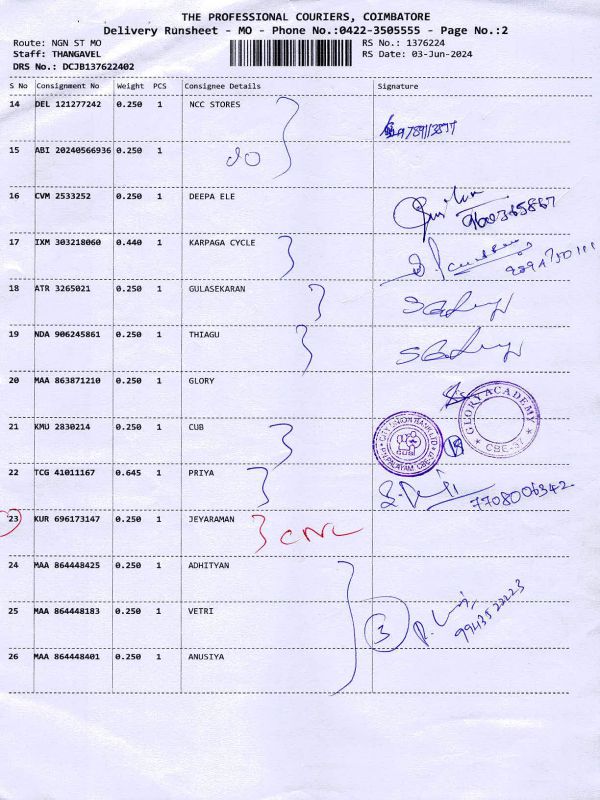 THE PROFESSIONAL COURIERS, COIMBATORE
Delivery Runsheet - MO - Phone No.:0422-3505555 - Page No.:2
Route: NGN ST MO RS No.: 1376224
Staff: THANGAVEL RS Date: 03-Jun-2024
DRS No.: DCJB137622402
S No Consignment No Weight PCS Consignee Details Signature
14 DEL 121277242 0.250 1 NCC STORES
15 ABI 20240566936 0.250 1
do
16 CVM 2533252 0.250 1 DEEPA ELE
9600365867
17 IXM 303218060 0.440 1 KARPAGA CYCLE
18 ATR 3265021 0.250 1 GULASEKARAN
19 NDA 906245861 0.250 1 THIAGU
20 MAA 863871210 0.250 1 GLORY
GLORY ACADEMY
CBE-37
21 KMU 2830214 0.250 1 CUB
22 TCG 41011167 0.645 1 PRIYA
7708006342
23 KUR 696173147 0.250 1 JEYARAMAN
CNL
24 MAA 864448425 0.250 1 ADHITYAN
25 MAA 864448183 0.250 1 VETRI
3
9943522223
26 MAA 864448401 0.250 1 ANUSIYA